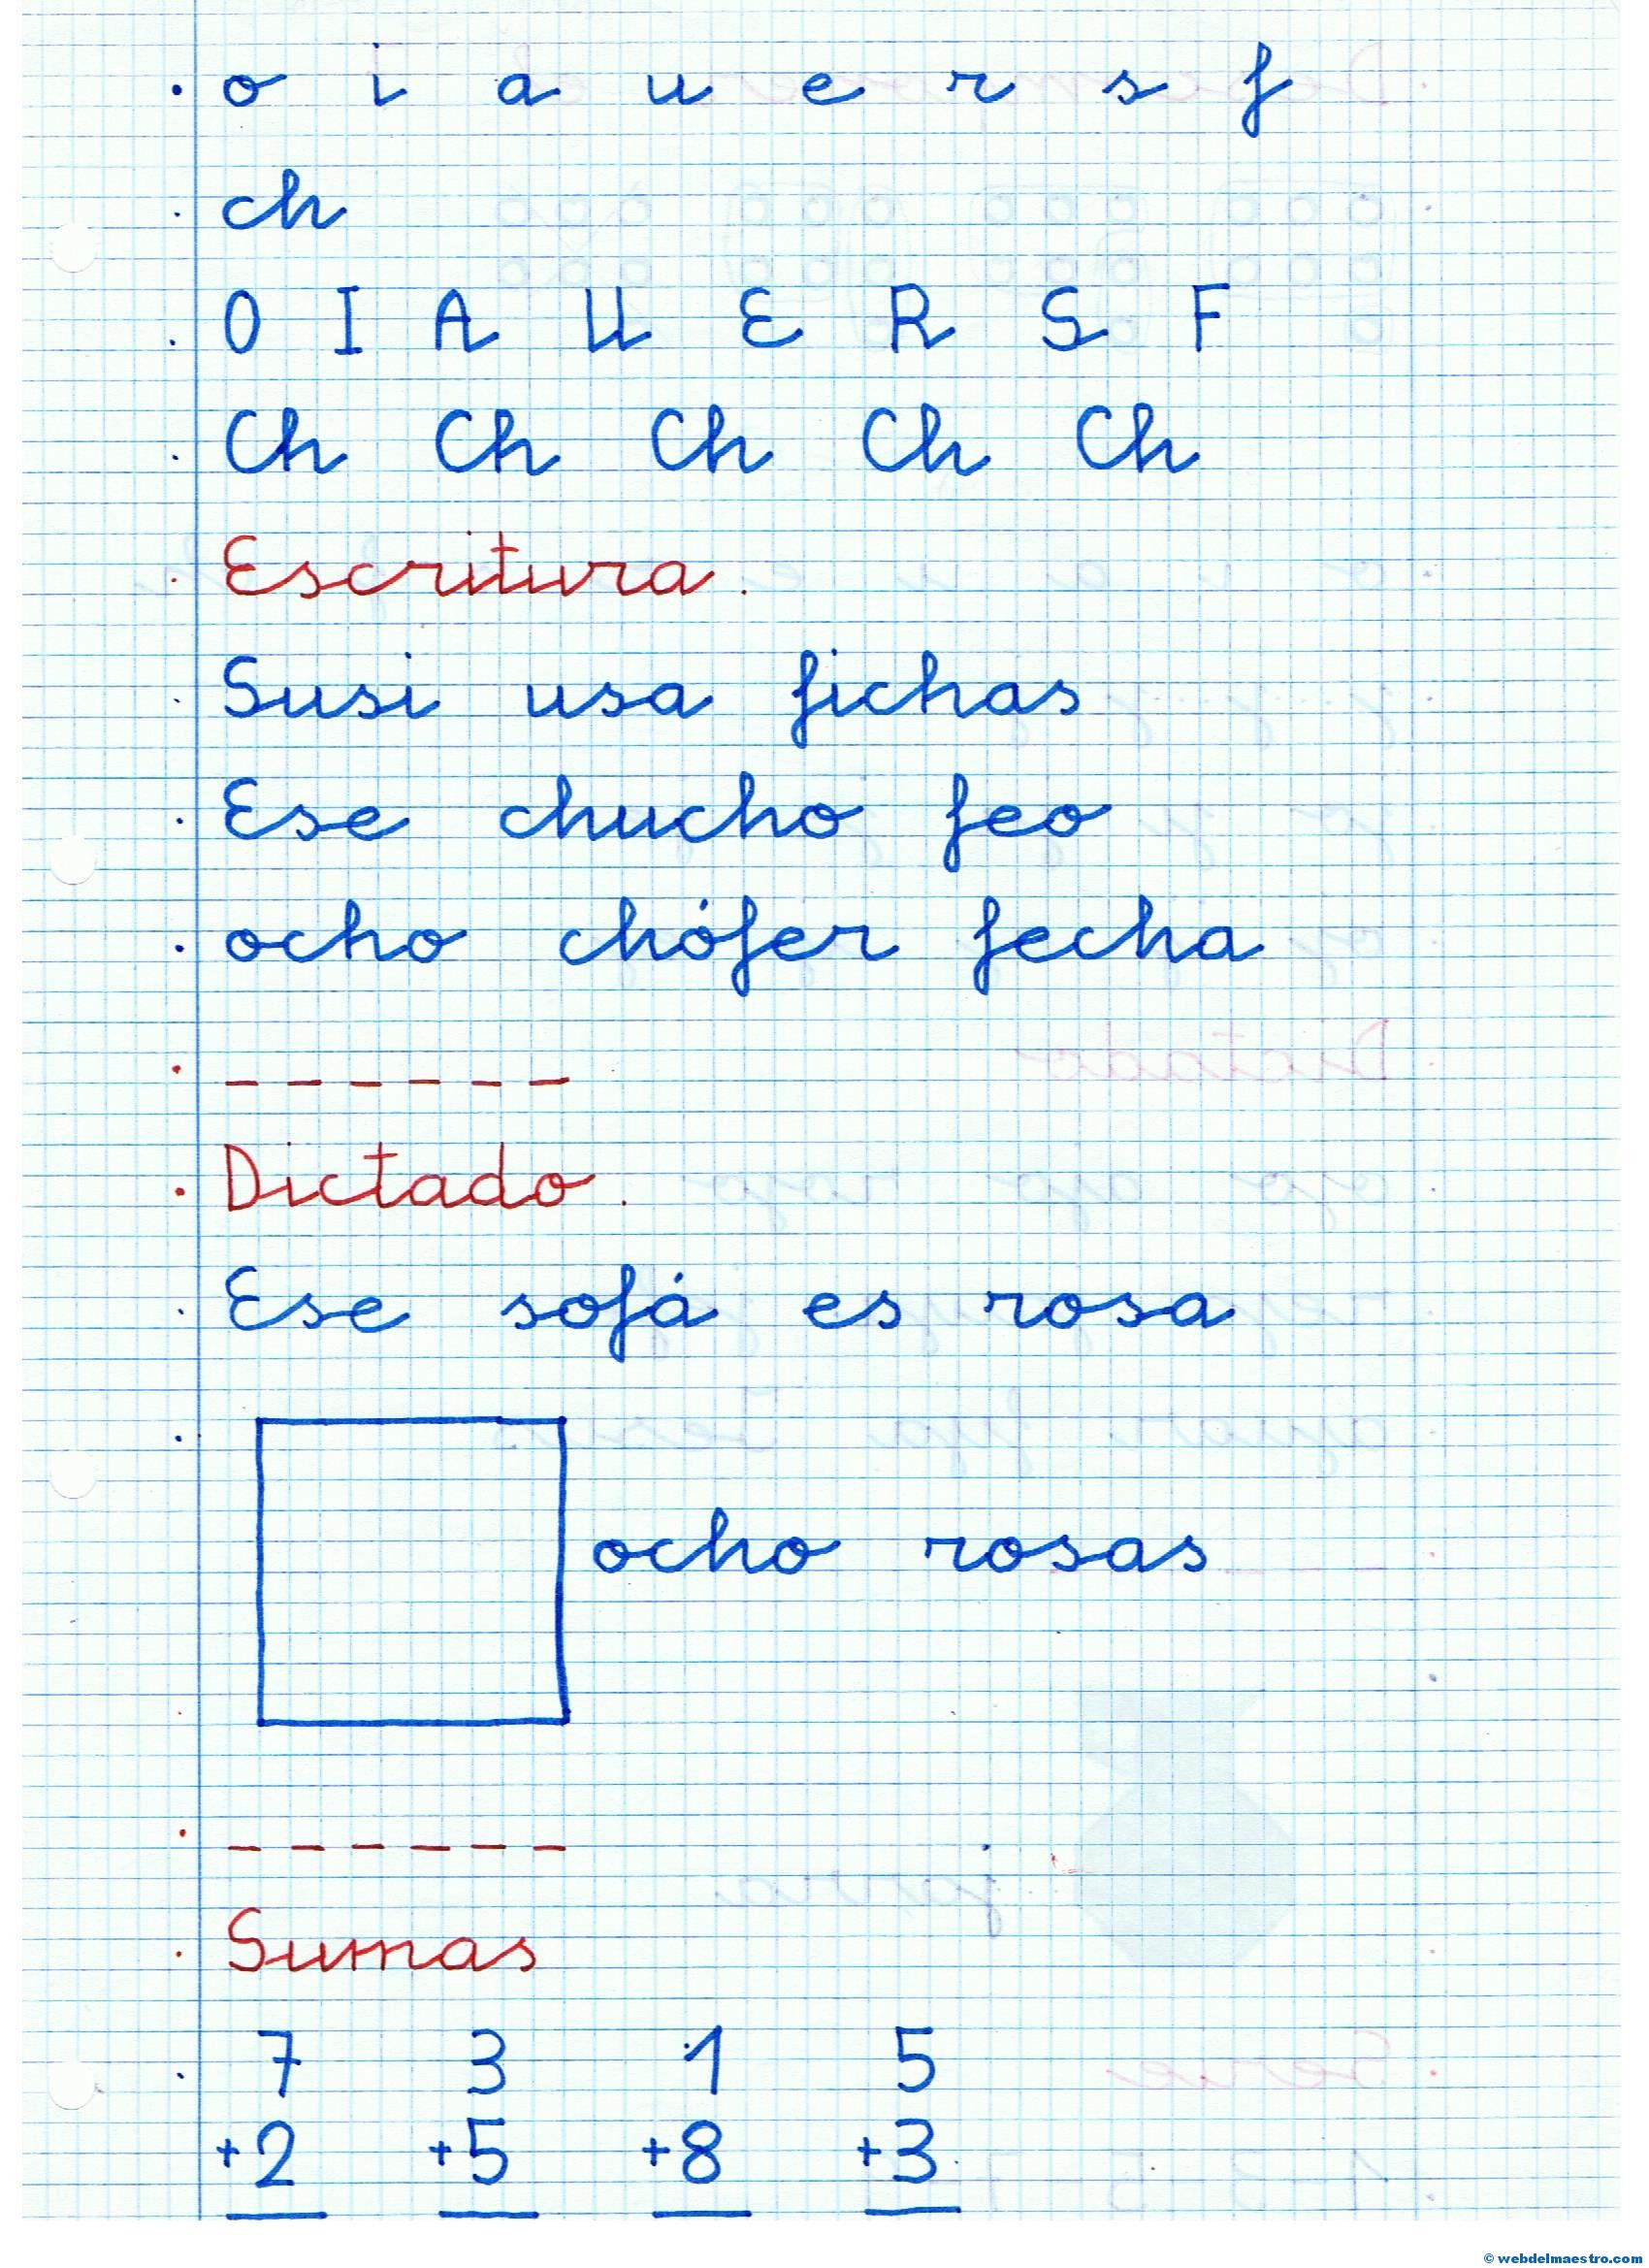 o i a u e r s f
ch
O I A U E R S F
Ch Ch Ch Ch Ch
Escritura.
Susi usa fichas
Ese chucho feo
ocho chófer fecha
------
Dictado.
Ese sofá es rosa
ocho rosas
------
Sumas
7 3 1 5
+2 +5 +8 +3
© webdelmaestro.com